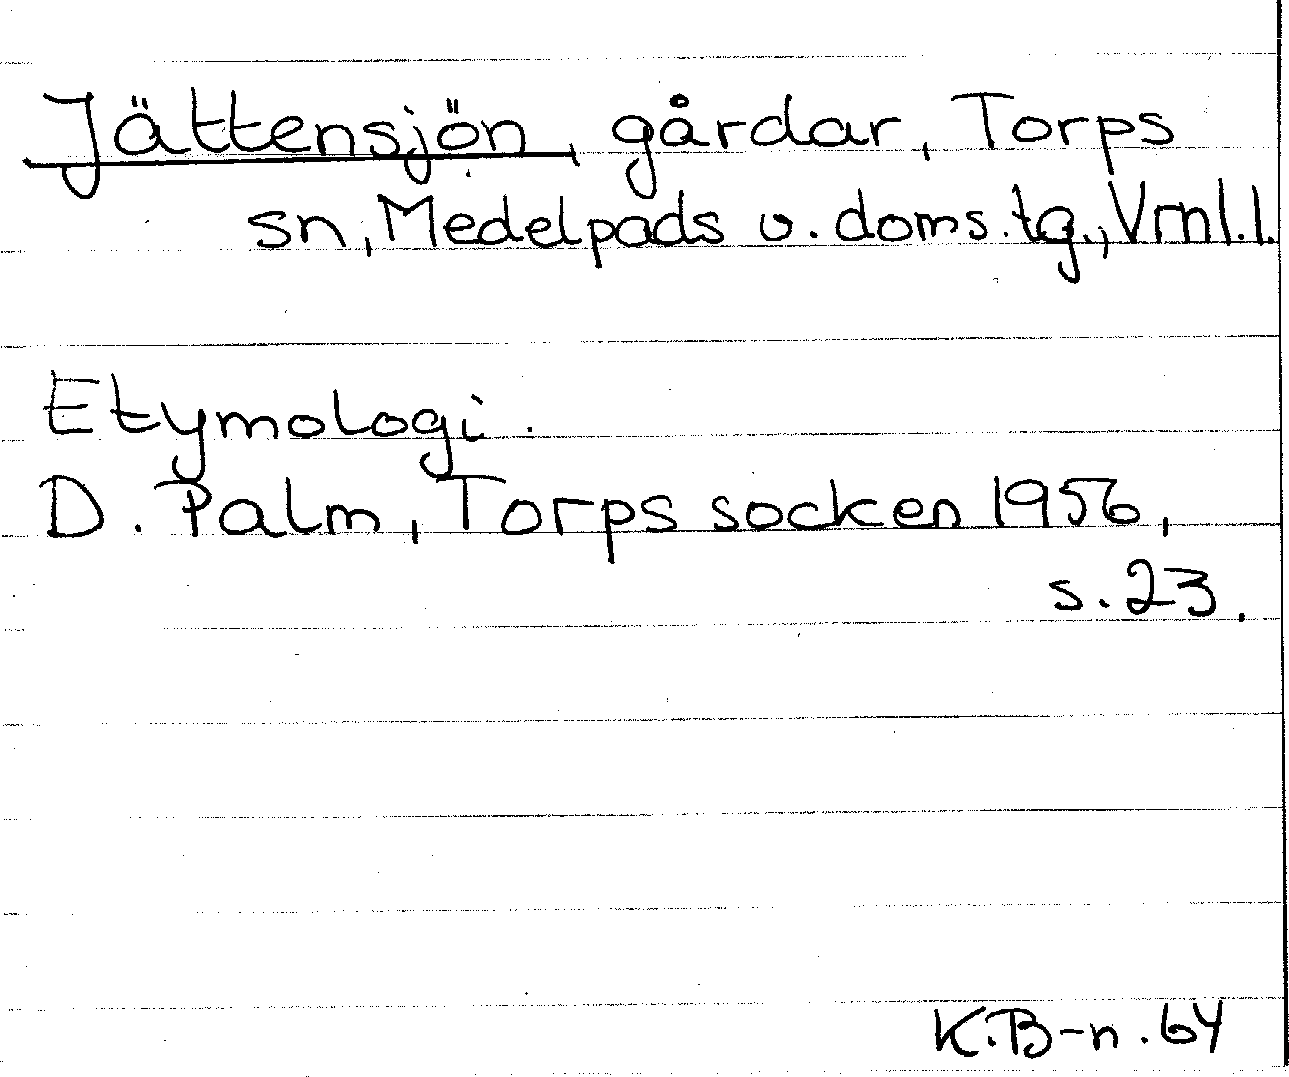 Jättensjön, gårdar, Torps
sn, Medelpads v. doms. tg., Vrnl.l.
Etymologi.
D. Palm, Torps socken 1956,
s. 23.
K.B-n. 64